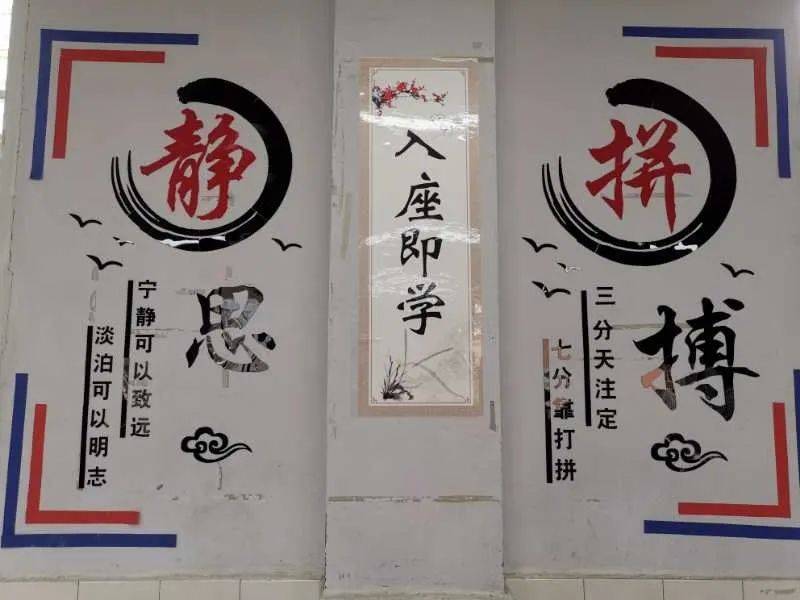 静思
宁静可以致远
淡泊可以明志
入座即学
拼搏
三分天注定
七分靠打拼